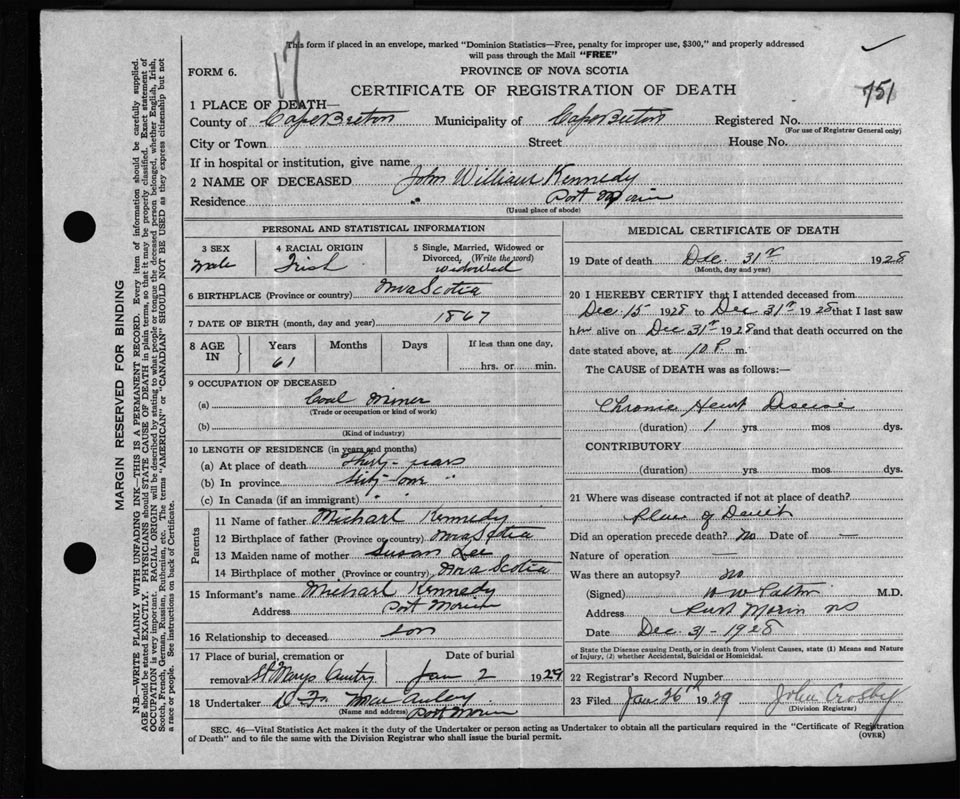 This form if placed in an envelope, marked "Dominion Statistics—Free, penalty for improper use, $300," and properly addressed
will pass through the Mail "FREE"
17
751
FORM 6.
PROVINCE OF NOVA SCOTIA
CERTIFICATE OF REGISTRATION OF DEATH
1 PLACE OF DEATH—
County of Cape Breton Municipality of Cape Breton Registered No.
(For use of Registrar General only)
City or Town Street House No.
If in hospital or institution, give name
2 NAME OF DECEASED John William Kennedy
Residence Port Morien
(Usual place of abode)
MARGIN RESERVED FOR BINDING
N.B.—WRITE PLAINLY WITH UNFADING INK—THIS IS A PERMANENT RECORD. Every item of information should be carefully supplied.
AGE should be stated EXACTLY. PHYSICIANS should STATE CAUSE OF DEATH in plain terms, so that it may be properly classified. Exact statement of
OCCUPATION is very important. RACIAL ORIGIN will be described by stating to what people or tongue the deceased person belonged, whether English, Irish,
Scotch, French, German, Russian, Ruthenian, etc. The terms "AMERICAN" or "CANADIAN" SHOULD NOT BE USED as they express citizenship but not
a race or people. See instructions on back of Certificate.
PERSONAL AND STATISTICAL INFORMATION
3 SEX
Male
4 RACIAL ORIGIN
Irish
5 Single, Married, Widowed or
Divorced, (Write the word)
widowed
6 BIRTHPLACE (Province or country) Nova Scotia
7 DATE OF BIRTH (month, day and year) 1867
8 AGE IN
Years Months Days If less than one day,
61 hrs. or min.
9 OCCUPATION OF DECEASED
(a) Coal Miner
(Trade or occupation or kind of work)
(b)
(Kind of industry)
10 LENGTH OF RESIDENCE (in years and months)
(a) At place of death Thirty-years
(b) In province Sixty-one "
(c) In Canada (if an immigrant) " "
Parents
11 Name of father Michael Kennedy
12 Birthplace of father (Province or country) Nova Scotia
13 Maiden name of mother Susan Lee
14 Birthplace of mother (Province or country) Nova Scotia
15 Informant's name Michael Kennedy
Address Port Morien
16 Relationship to deceased son
17 Place of burial, cremation or Date of burial
removal St Marys Cemtry Jan 2 1929
18 Undertaker D F MacAuley
(Name and address) Port Morien
MEDICAL CERTIFICATE OF DEATH
19 Date of death Dec. 31st 1928
(Month, day and year)
20 I HEREBY CERTIFY that I attended deceased from
Dec 15 1928 to Dec 31st 1928 that I last saw
him alive on Dec 31st 1928 and that death occurred on the
date stated above, at 10 P. m.
The CAUSE of DEATH was as follows:—
Chronic Heart Disease
(duration) 1 yrs mos dys.
CONTRIBUTORY
(duration) yrs mos dys.
21 Where was disease contracted if not at place of death?
Place of Death
Did an operation precede death? No Date of —
Nature of operation —
Was there an autopsy? no
(Signed) W W Patton M.D.
Address Port Morien NS
Date Dec 31 - 1928
State the Disease causing Death, or in death from Violent Causes, state (1) Means and Nature
of Injury, (2) whether Accidental, Suicidal or Homicidal.
22 Registrar's Record Number
23 Filed Jan 26th 1929 John Crosby
(Division Registrar)
SEC. 46—Vital Statistics Act makes it the duty of the Undertaker or person acting as Undertaker to obtain all the particulars required in the "Certificate of Registration
of Death" and to file the same with the Division Registrar who shall issue the burial permit.
(OVER)